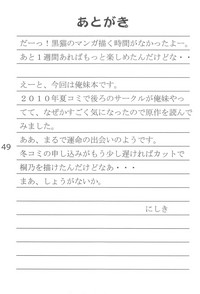 あとがき
だーっ！黒猫のマンガ描く時間がなかったよー。
あと１週間あればもっと楽しめたんだけどな・・
えーと、今回は俺妹本です。
２０１０年夏コミで後ろのサークルが俺妹やっ
てて、なぜかすごく気になったので原作を読んで
みました。
ああ、まるで運命の出会いのようです。
冬コミの申し込みがもう少し遅ければカットで
桐乃を描けたんだけどなあ・・・
まあ、しょうがないか。
にしき
49